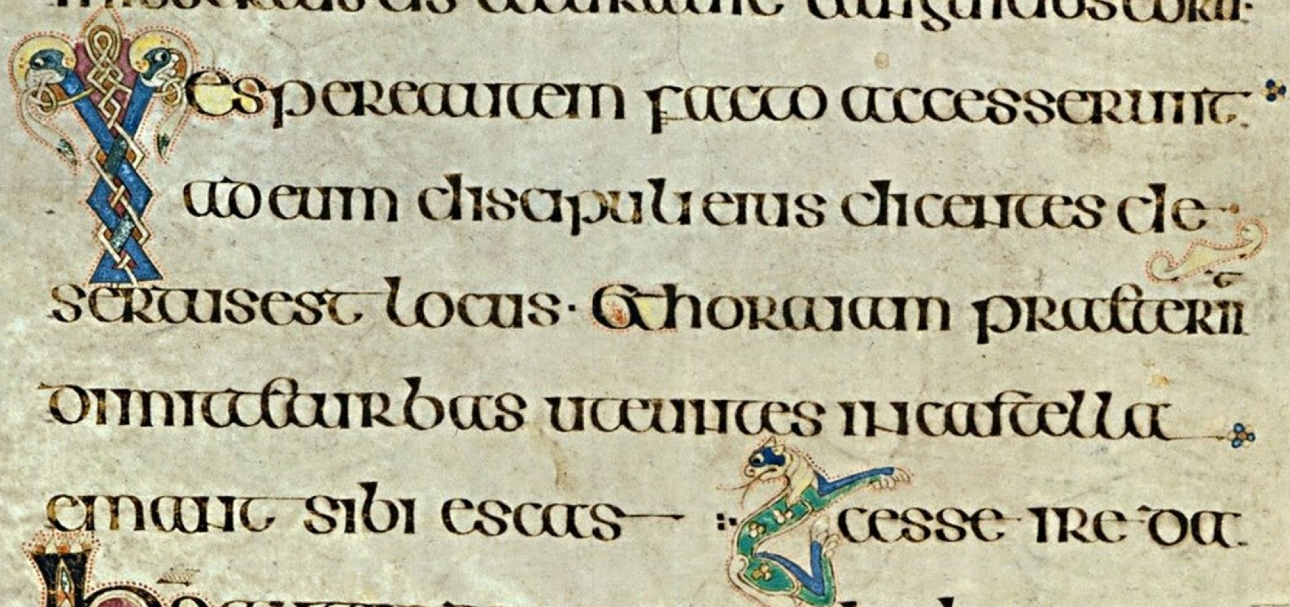 languidos eoru·
Vespereautem facto accesserunt
adeum discipuli eius dicentes de
sertusest locus · Et horaiam praeteriit
dimitteturbas uteuntes incastella
emant sibi escas cesse ire da